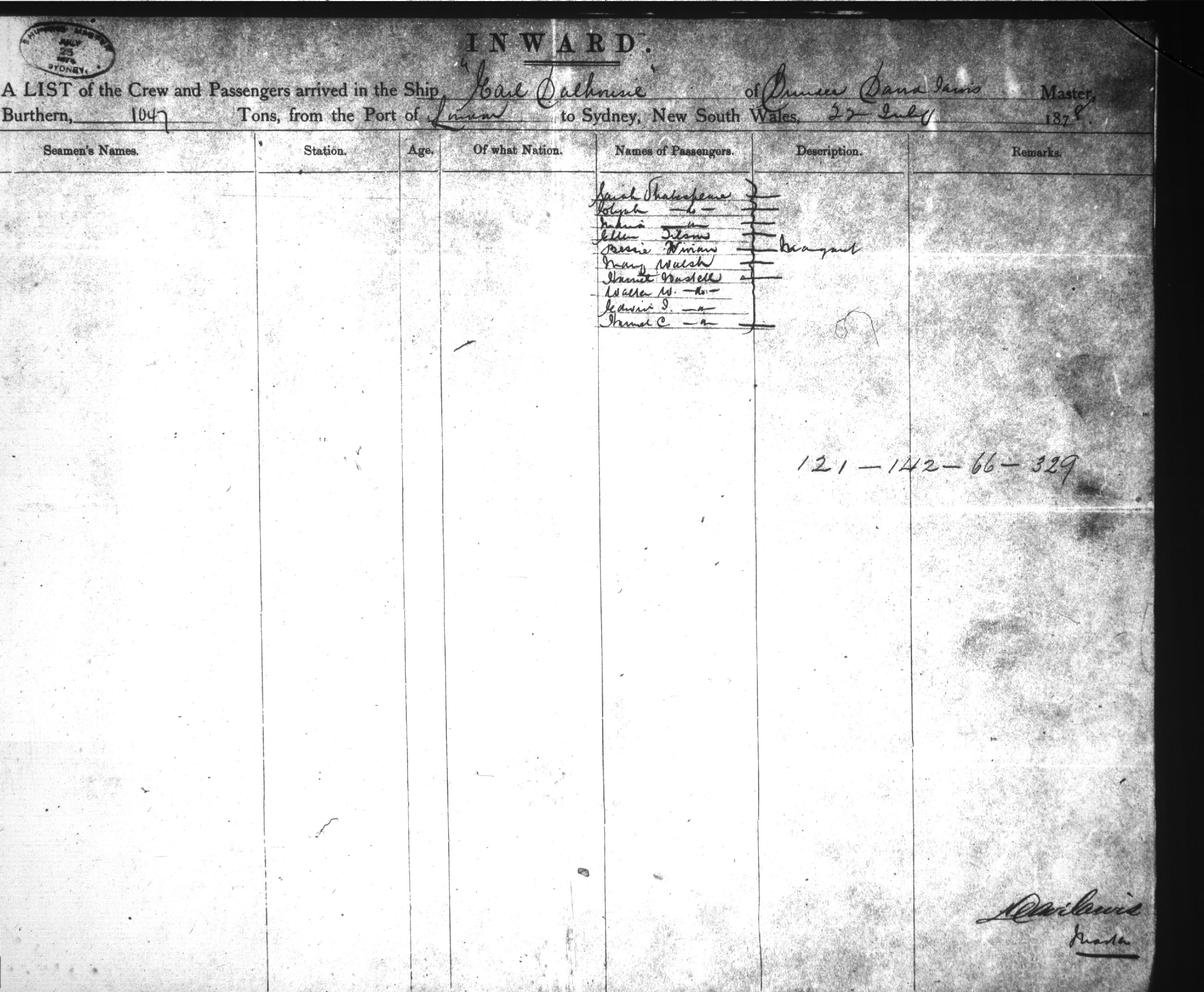 SHIPPING MASTER
JULY
23
1878
SYDNEY.
INWARD.
A LIST of the Crew and Passengers arrived in the Ship "Earl Dalhousie" of Dundee David Master,
Burthern, 1047 Tons, from the Port of London to Sydney, New South Wales, 22 July 1878.
Seamen's Names. Station. Age. Of what Nation. Names of Passengers. Description. Remarks.
Sarah Shakespeare
— do —
— " —
Ellen
Bessie Vivian Margaret
Mary Walsh
Harriet
Walter W. — do. —
Edwin J. — " —
C — " —
121 — 142 — 66 — 329
Master